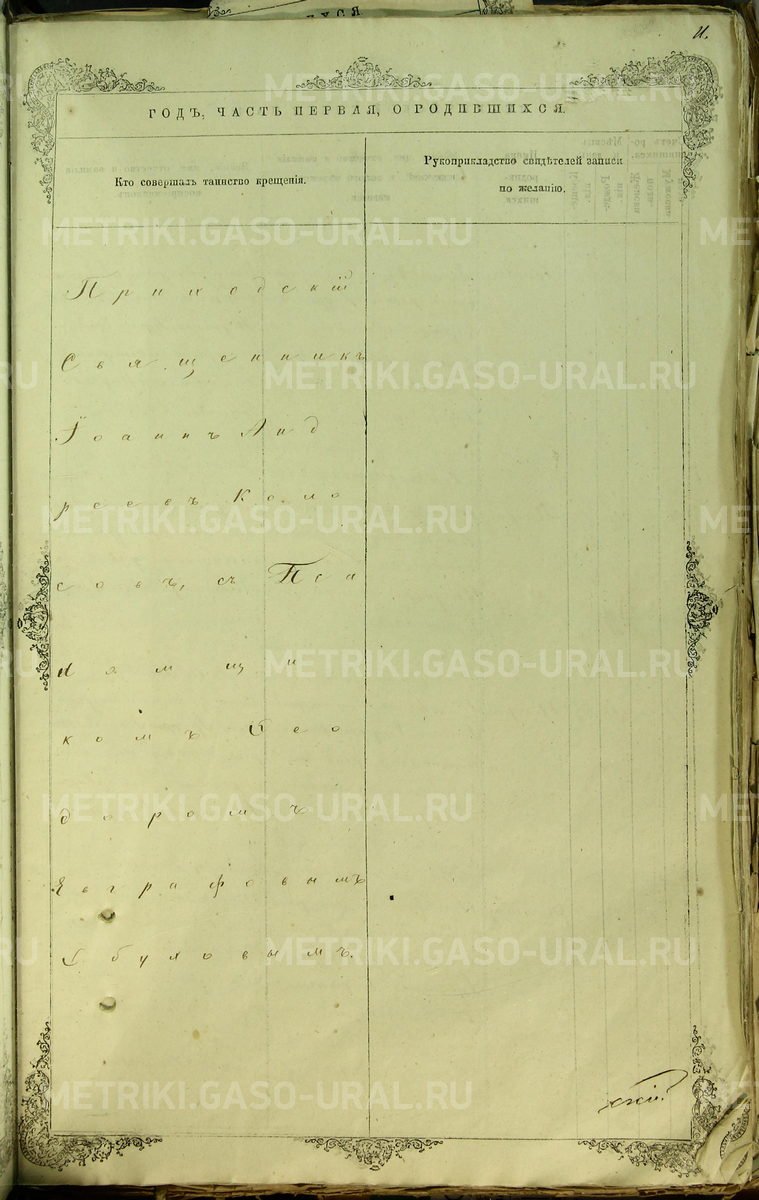 и.
ГОДЪ, ЧАСТЬ ПЕРВАЯ, О РОДИВШИХСЯ.
Кто совершалъ таинство крещенія.
Рукоприкладство свидѣтелей записи
по желанію.
Приходскій
Священникъ
Іоаннъ Анд
реевъ
совъ, съ Пса
ломщи
комъ Ѳео
доромъ
Евграфовымъ
METRIKI.GASO-URAL.RU